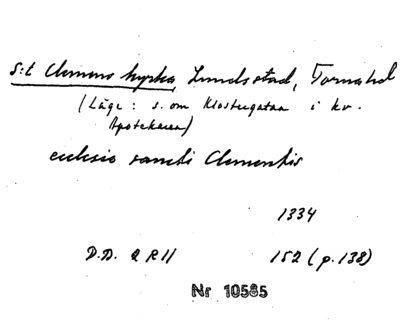 S:t Clemens kyrka, Lunds stad, Torna hd
(Läge: s. om Klostergatan i kv.
Apotekaren)
ecclesie sancti Clementis
1334
D.D. 2 R 11 152 (p. 138)
Nr 10585